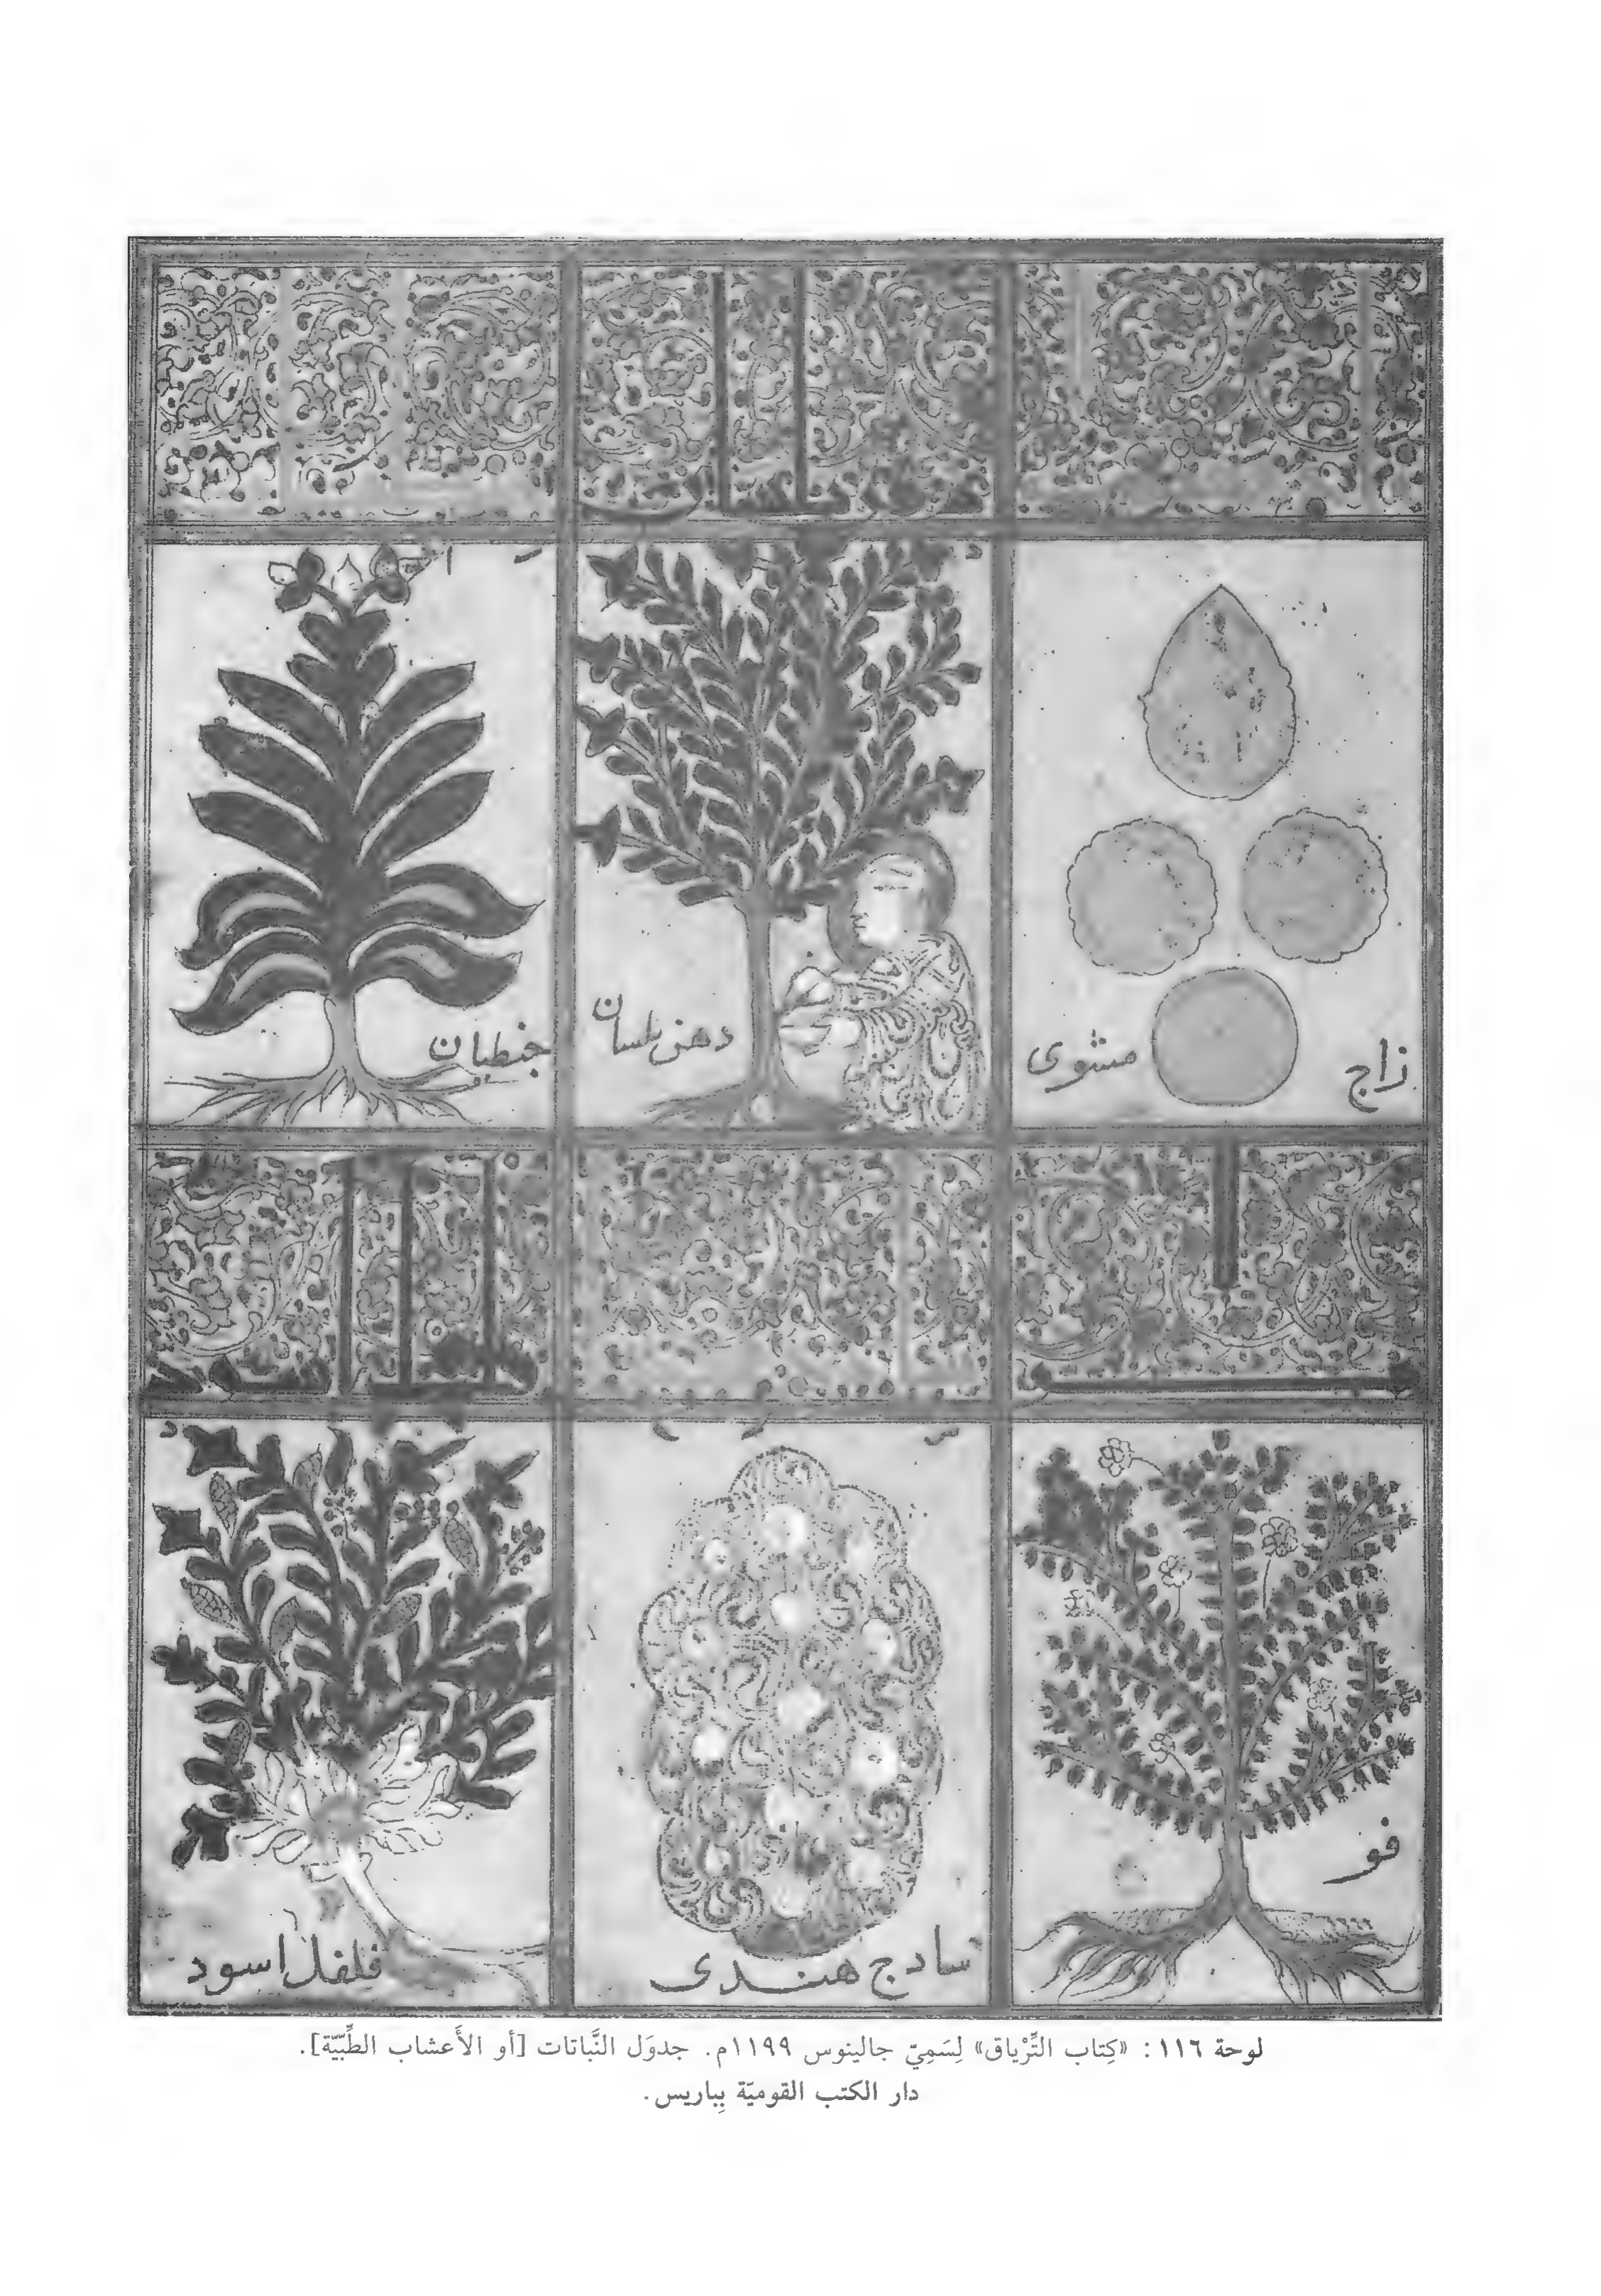 زاج
مشوى
دهن بلسان
جنطيان
فو
سادج هندى
فلفل اسود
لوحة ١١٦ : «كِتاب التِّرْياق» لِسَمِيّ جالينوس ١١٩٩م. جدوَل النَّباتات [أو الأَعشاب الطِّبِّيّة].
دار الكتب القوميّة بِباريس.